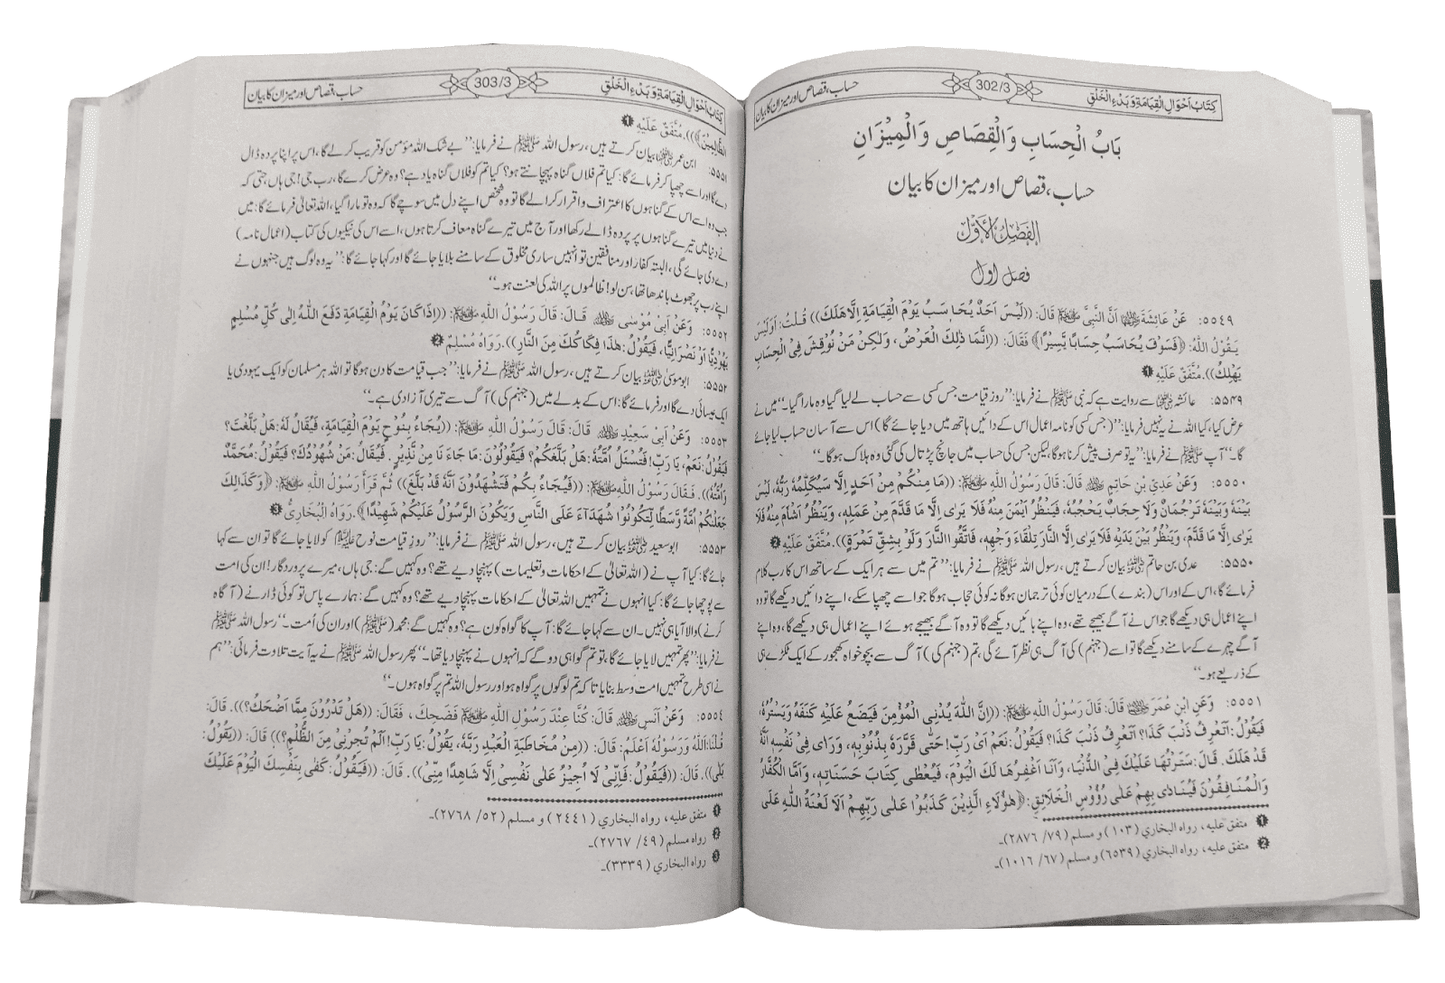 کِتَابُ اَحْوَالِ الْقِیَامَةِ وَبَدْءِ الْخَلْقِ 302/3 حساب، قصاص اور میزان کا بیان
بَابُ الْحِسَابِ وَالْقِصَاصِ وَالْمِيْزَانِ
حساب، قصاص اور میزان کا بیان
الفَصْلُ الْأَوَّلُ
فصل اول
٥٥٤٩: عَنْ عَائِشَةَ ؓ اَنَّ النَّبِيَّ ﷺ قَالَ: ((لَيْسَ اَحَدٌ يُحَاسَبُ يَوْمَ الْقِيَامَةِ اِلَّا هَلَكَ)) قُلْتُ: اَوَلَيْسَ
يَقُوْلُ اللّٰهُ: ﴿فَسَوْفَ يُحَاسَبُ حِسَابًا يَّسِيْرًا﴾ فَقَالَ: ((اِنَّمَا ذٰلِكَ الْعَرْضُ، وَلٰكِنْ مَنْ نُوْقِشَ فِي الْحِسَابِ
يَهْلِكُ)). مُتَّفَقٌ عَلَيْهِ ❶
۵۵۴۹: عائشہ ؓ سے روایت ہے کہ نبی ﷺ نے فرمایا: ’’روز قیامت جس کسی سے حساب لے لیا گیا وہ مارا گیا۔‘‘ میں نے
عرض کیا، کیا اللہ نے یہ نہیں فرمایا: ’’(جس کسی کو نامہ اعمال اس کے دائیں ہاتھ میں دیا جائے گا) اس سے آسان حساب لیا جائے
گا۔‘‘ آپ ﷺ نے فرمایا: ’’یہ تو صرف پیش کرنا ہوگا، لیکن جس کی حساب میں جانچ پڑتال کی گئی وہ ہلاک ہوگا۔‘‘
٥٥٥٠: وَعَنْ عَدِيِّ بْنِ حَاتِمٍ ؓ قَالَ: قَالَ رَسُوْلُ اللّٰهِ ﷺ: ((مَا مِنْكُمْ مِنْ اَحَدٍ اِلَّا سَيُكَلِّمُهٗ رَبُّهٗ، لَيْسَ
بَيْنَهٗ وَبَيْنَهٗ تَرْجُمَانٌ وَلَا حِجَابٌ يَحْجُبُهٗ، فَيَنْظُرُ اَيْمَنَ مِنْهُ فَلَا يَرٰى اِلَّا مَا قَدَّمَ مِنْ عَمَلِهٖ، وَيَنْظُرُ اَشْاَمَ مِنْهُ فَلَا
يَرٰى اِلَّا مَا قَدَّمَ، وَيَنْظُرُ بَيْنَ يَدَيْهِ فَلَا يَرٰى اِلَّا النَّارَ تِلْقَاءَ وَجْهِهٖ، فَاتَّقُوا النَّارَ وَلَوْ بِشِقِّ تَمْرَةٍ)). مُتَّفَقٌ عَلَيْهِ ❷
۵۵۵۰: عدی بن حاتم ؓ بیان کرتے ہیں، رسول اللہ ﷺ نے فرمایا: ’’تم میں سے ہر ایک کے ساتھ اس کا رب کلام
فرمائے گا، اس کے اور اس (بندے) کے درمیان کوئی ترجمان ہوگا نہ کوئی حجاب ہوگا جو اسے چھپا سکے، اپنے دائیں دیکھے گا تو وہ
اپنے اعمال ہی دیکھے گا جو اس نے آگے بھیجے تھے، وہ اپنے بائیں دیکھے گا تو وہ آگے بھیجے ہوئے اپنے اعمال ہی دیکھے گا، وہ اپنے
آگے چہرے کے سامنے دیکھے گا تو اسے (جہنم) کی آگ ہی نظر آئے گی، تم (جہنم کی) آگ سے بچو خواہ کھجور کے ایک ٹکڑے ہی
کے ذریعے ہو۔‘‘
٥٥٥١: وَعَنِ ابْنِ عُمَرَ ؓ قَالَ: قَالَ رَسُوْلُ اللّٰهِ ﷺ: ((اِنَّ اللّٰهَ يُدْنِى الْمُؤْمِنَ فَيَضَعُ عَلَيْهِ كَنَفَهٗ وَيَسْتُرُهٗ،
فَيَقُوْلُ: اَتَعْرِفُ ذَنْبَ كَذَا؟ اَتَعْرِفُ ذَنْبَ كَذَا؟ فَيَقُوْلُ: نَعَمْ اَيْ رَبِّ! حَتّٰى قَرَّرَهٗ بِذُنُوْبِهٖ، وَرَاٰى فِيْ نَفْسِهٖ اَنَّهٗ
قَدْ هَلَكَ. قَالَ: سَتَرْتُهَا عَلَيْكَ فِي الدُّنْيَا، وَاَنَا اَغْفِرُهَا لَكَ الْيَوْمَ، فَيُعْطٰى كِتَابَ حَسَنَاتِهٖ، وَاَمَّا الْكُفَّارُ
وَالْمُنَافِقُوْنَ فَيُنَادٰى بِهِمْ عَلٰى رُؤُوْسِ الْخَلَائِقِ: ﴿هٰؤُلَاءِ الَّذِيْنَ كَذَبُوْا عَلٰى رَبِّهِمْ اَلَا لَعْنَةُ اللّٰهِ عَلَى
❶ متفق عليه، رواه البخاري (١٠٣) و مسلم (٧٩/ ٢٨٧٦)۔
❷ متفق عليه، رواه البخاري (٦٥٣٩) و مسلم (٦٧/ ١٠١٦)۔
کِتَابُ اَحْوَالِ الْقِیَامَةِ وَبَدْءِ الْخَلْقِ 303/3 حساب، قصاص اور میزان کا بیان
الظَّالِمِيْنَ﴾)). مُتَّفَقٌ عَلَيْهِ ❶
۵۵۵۱: ابن عمر ؓ بیان کرتے ہیں، رسول اللہ ﷺ نے فرمایا: ’’بے شک اللہ مؤمن کو قریب کرلے گا، اس پر اپنا پردہ ڈال
دے گا اور اسے چھپا کر فرمائے گا: کیا تم فلاں گناہ پہچانتے ہو؟ کیا تم کو فلاں گناہ یاد ہے؟ وہ عرض کرے گا، رب جی! جی ہاں، حتیٰ کہ
جب وہ اسے اس کے گناہوں کا اعتراف و اقرار کرالے گا تو وہ شخص اپنے دل میں سوچے گا کہ وہ تو مارا گیا، اللہ تعالیٰ فرمائے گا: میں
نے دنیا میں تیرے گناہوں پر پردہ ڈالے رکھا اور آج میں تیرے گناہ معاف کرتا ہوں، اسے اس کی نیکیوں کی کتاب (اعمال نامہ)
دے دی جائے گی، البتہ کفار اور منافقین تو انہیں ساری مخلوق کے سامنے بلایا جائے گا اور کہا جائے گا: ’’یہ وہ لوگ ہیں جنہوں نے
اپنے رب پر جھوٹ باندھا تھا، سن لو! ظالموں پر اللہ کی لعنت ہو۔‘‘
٥٥٥٢: وَعَنْ اَبِيْ مُوْسٰى ؓ قَالَ: قَالَ رَسُوْلُ اللّٰهِ ﷺ: ((اِذَا كَانَ يَوْمُ الْقِيَامَةِ دَفَعَ اللّٰهُ اِلٰى كُلِّ مُسْلِمٍ
يَهُوْدِيًّا اَوْ نَصْرَانِيًّا، فَيَقُوْلُ: هٰذَا فِكَاكُكَ مِنَ النَّارِ)). رَوَاهُ مُسْلِمٌ ❷
۵۵۵۲: ابو موسیٰ ؓ بیان کرتے ہیں، رسول اللہ ﷺ نے فرمایا: ’’جب قیامت کا دن ہوگا تو اللہ ہر مسلمان کو ایک یہودی یا
ایک عیسائی دے گا اور فرمائے گا: اس کے بدلے میں (جہنم کی) آگ سے تیری آزادی ہے۔‘‘
٥٥٥٣: وَعَنْ اَبِيْ سَعِيْدٍ ؓ قَالَ: قَالَ رَسُوْلُ اللّٰهِ ﷺ: ((يُجَاءُ بِنُوْحٍ يَوْمَ الْقِيَامَةِ، فَيُقَالُ لَهٗ: هَلْ بَلَّغْتَ؟
فَيَقُوْلُ: نَعَمْ، يَا رَبِّ! فَتُسْئَلُ اُمَّتُهٗ: هَلْ بَلَّغَكُمْ؟ فَيَقُوْلُوْنَ: مَا جَاءَنَا مِنْ نَّذِيْرٍ. فَيُقَالُ: مَنْ شُهُوْدُكَ؟ فَيَقُوْلُ: مُحَمَّدٌ
وَاُمَّتُهٗ)). فَقَالَ رَسُوْلُ اللّٰهِ ﷺ: ((فَيُجَاءُ بِكُمْ فَتَشْهَدُوْنَ اَنَّهٗ قَدْ بَلَّغَ)) ثُمَّ قَرَأَ رَسُوْلُ اللّٰهِ ﷺ: ﴿وَكَذٰلِكَ
جَعَلْنٰكُمْ اُمَّةً وَّسَطًا لِّتَكُوْنُوْا شُهَدَآءَ عَلَى النَّاسِ وَيَكُوْنَ الرَّسُوْلُ عَلَيْكُمْ شَهِيْدًا﴾. رَوَاهُ الْبُخَارِيُّ ❸
۵۵۵۳: ابوسعید ؓ بیان کرتے ہیں، رسول اللہ ﷺ نے فرمایا: ’’روزِ قیامت نوح علیہ السلام کو لایا جائے گا تو ان سے کہا
جائے گا: کیا آپ نے (اللہ تعالیٰ کے احکامات و تعلیمات) پہنچا دیے تھے؟ وہ کہیں گے: جی ہاں، میرے پروردگار! ان کی امت
سے پوچھا جائے گا: کیا انہوں نے تمہیں اللہ تعالیٰ کے احکامات پہنچا دیے تھے؟ وہ کہیں گے: ہمارے پاس تو کوئی ڈرانے (آگاہ
کرنے) والا آیا ہی نہیں۔ ان سے کہا جائے گا: آپ کا گواہ کون ہے؟ وہ کہیں گے: محمد (ﷺ) اور ان کی اُمت۔‘‘ رسول اللہ ﷺ
نے فرمایا: ’’پھر تمہیں لایا جائے گا، تو تم گواہی دو گے کہ انہوں نے پہنچا دیا تھا۔‘‘ پھر رسول اللہ ﷺ نے یہ آیت تلاوت فرمائی: ’’ہم
نے اسی طرح تمہیں امت وسط بنایا تاکہ تم لوگوں پر گواہ ہو اور رسول اللہ تم پر گواہ ہوں۔‘‘
٥٥٥٤: وَعَنْ اَنَسٍ ؓ قَالَ: كُنَّا عِنْدَ رَسُوْلِ اللّٰهِ ﷺ فَضَحِكَ، فَقَالَ: ((هَلْ تَدْرُوْنَ مِمَّا اَضْحَكُ؟)). قَالَ:
قُلْنَا: اَللّٰهُ وَرَسُوْلُهٗ اَعْلَمُ: قَالَ: ((مِنْ مُخَاطَبَةِ الْعَبْدِ رَبَّهٗ، يَقُوْلُ: يَا رَبِّ! اَلَمْ تُجِرْنِيْ مِنَ الظُّلْمِ؟)) قَالَ: ((يَقُوْلُ:
بَلٰى)). قَالَ: ((فَيَقُوْلُ: فَاِنِّيْ لَا اُجِيْزُ عَلٰى نَفْسِيْ اِلَّا شَاهِدًا مِنِّيْ)). قَالَ: ((فَيَقُوْلُ: كَفٰى بِنَفْسِكَ الْيَوْمَ عَلَيْكَ
❶ متفق عليه، رواه البخاري (٢٤٤١) و مسلم (٥٢/ ٢٧٦٨)۔
❷ رواه مسلم (٤٩/ ٢٧٦٧)۔
❸ رواه البخاري (٣٣٣٩)۔